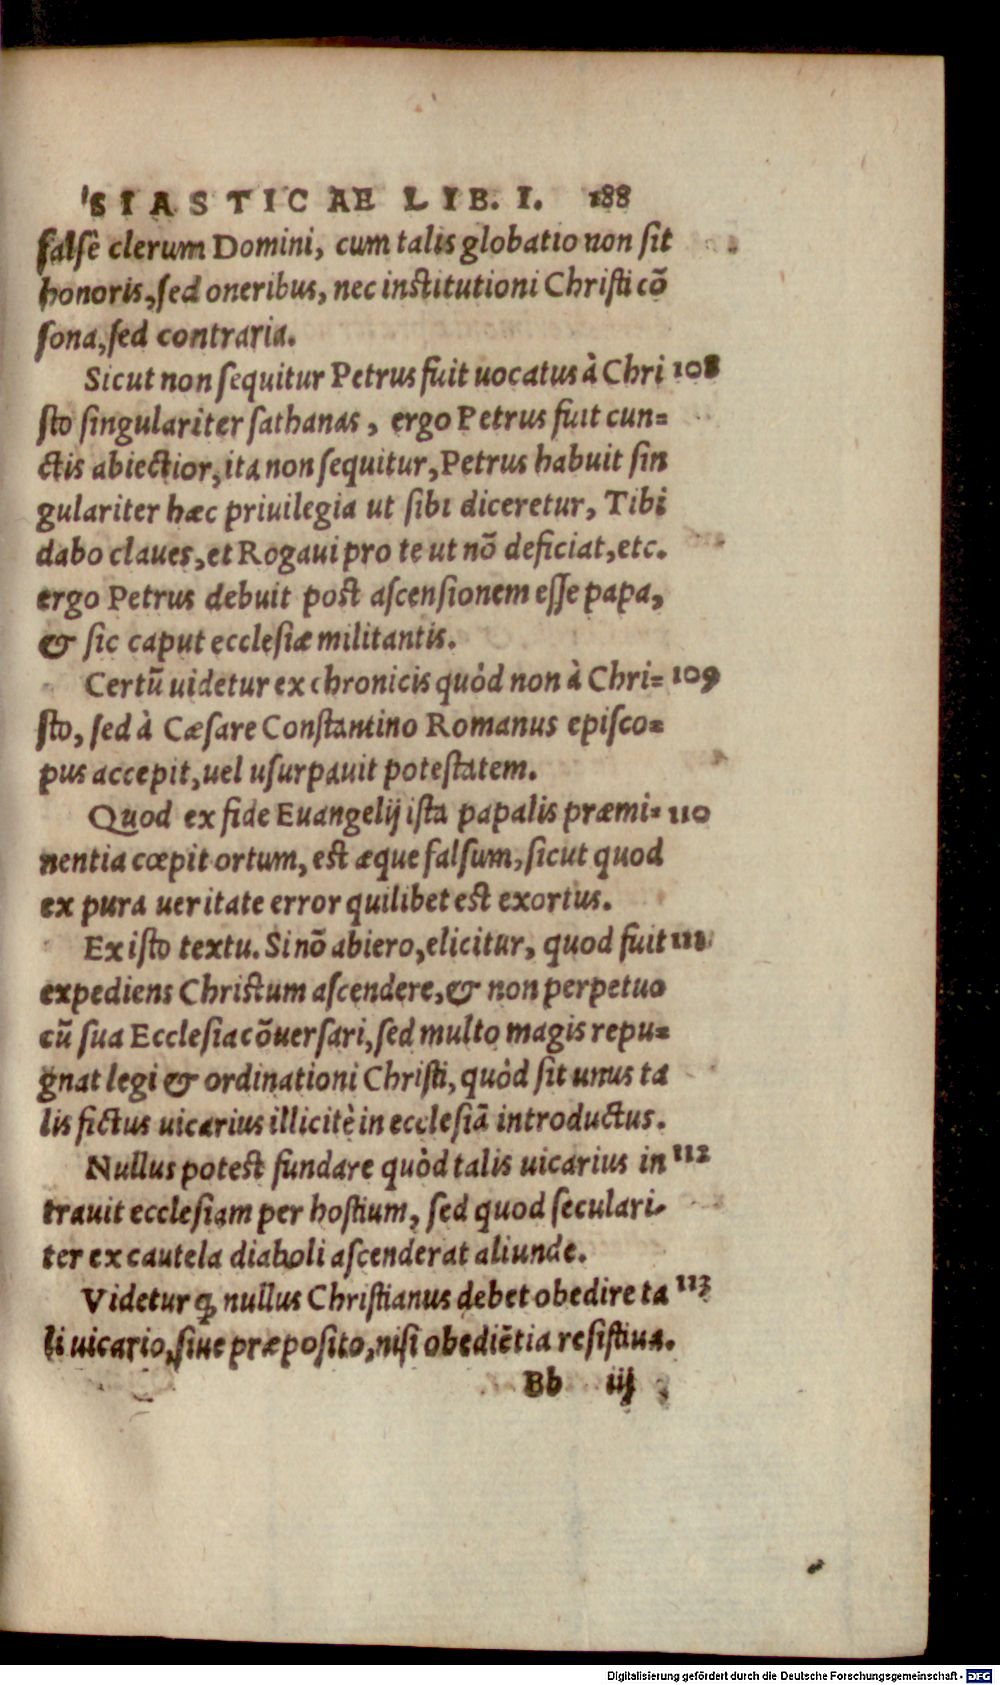 SIASTICAE LIB. I. 188
falsè clerum Domini, cum talis globatio non sit
honoris, sed oneribus, nec institutioni Christi cõ
sona, sed contraria.
Sicut non sequitur Petrus fuit uocatus à Chri 108
sto singulariter sathanas, ergo Petrus fuit cun=
ctis abiectior, ita non sequitur, Petrus habuit sin
gulariter hæc priuilegia ut sibi diceretur, Tibi
dabo claues, et Rogaui pro te ut nõ deficiat, etc.
ergo Petrus debuit post ascensionem esse papa,
& sic caput ecclesiæ militantis.
Certũ uidetur ex chronicis quòd non à Chri= 109
sto, sed à Cæsare Constantino Romanus episco=
pus accepit, uel usurpauit potestatem.
Quod ex fide Euangelij ista papalis præmi= 110
nentia cœpit ortum, est æque falsum, sicut quod
ex pura ueritate error quilibet est exortus.
Ex isto textu. Si nõ abiero, elicitur, quod fuit 111
expediens Christum ascendere, & non perpetuo
cũ sua Ecclesia cõuersari, sed multo magis repu=
gnat legi & ordinationi Christi, quòd sit unus ta
lis fictus uicarius illicitè in ecclesiã introductus.
Nullus potest fundare quòd talis uicarius in 112
trauit ecclesiam per hostium, sed quod seculari=
ter ex cautela diaboli ascenderat aliunde.
Videtur ꝙ nullus Christianus debet obedire ta 113
li uicario, siue præposito, nisi obediẽtia resistiua.
Bb iij
Digitalisierung gefördert durch die Deutsche Forschungsgemeinschaft - DFG